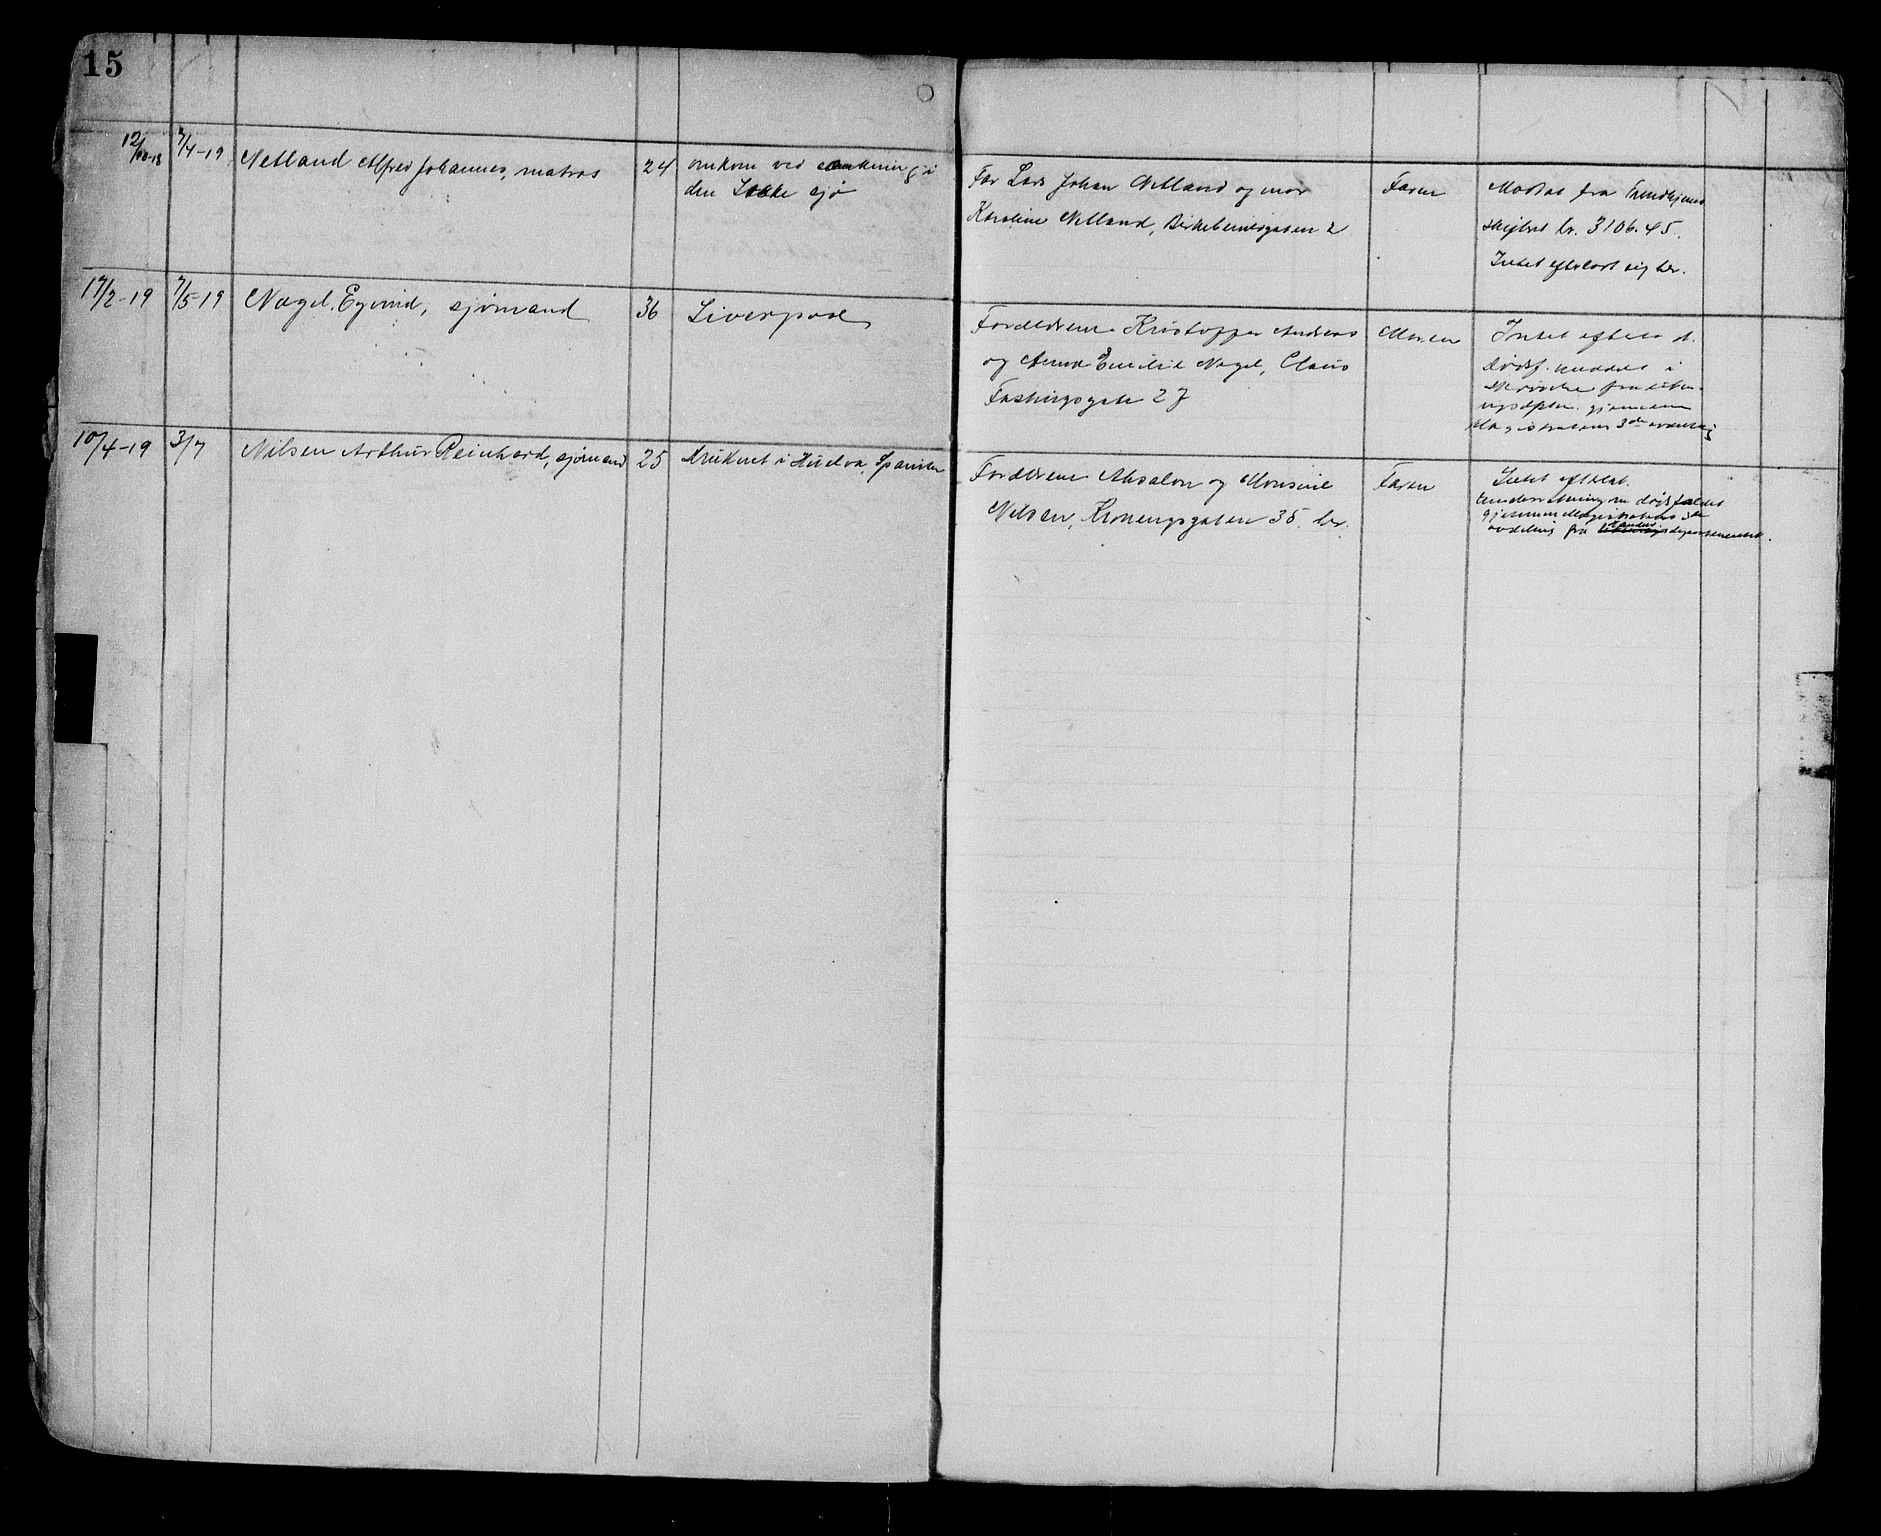 15
12/10-18 7/4-19 Netland Alfred Johannes, matros 24 omkom ved sænkning i
den Irske sjø
Far Lars Johan Netland og mor
Karoline Netland, Birkebeinergaten 2
Faren
Mottat fra
skiftet kr. 3106.45.
Intet efterlatt sig her.
17/2-19 7/5-19 Nagel, Eyvind, sjømand 36 Liverpool
Forældrene Kristoffer Andreas
og Anna Emilie Nagel, Claus
Fastingsgate 27
Moren
Intet efterlat.
Dødsf. meddelt i
skrivelse fra
gjennem
Magistratens 3die avdeling
10/4-19 3/7 Nilsen Arthur Reinhard, sjømand 25 druknet i Huelva, Spanien
Forældrene Absalon og Monsine
Nilsen, Kroningsgaten 35. her.
Faren
Intet efterlat.
Underretning om dødsfaldet
gjennem Magistratens 3die
avdeling fra Handelsdepartementet.